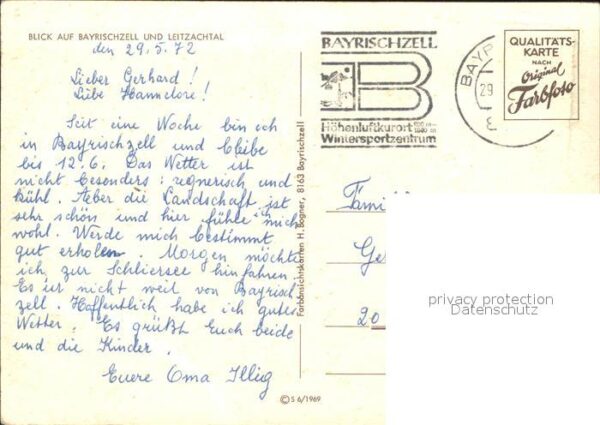 BLICK AUF BAYRISCHZELL UND LEITZACHTAL
den 29.5.72
Lieber Gerhard!
Liebe Hannelore!
Seit eine Woche bin ich
in Bayrischzell und bleibe
bis 12.6. Das Wetter ist
nicht besonders: regnerisch und
kühl. Aber die Landschaft ist
sehr schön und hier fühle mich
wohl. Werde mich bestimmt
gut erholen. Morgen möchte
ich zur Schliersee hinfahren.
Es ist nicht weit von Bayrisch-
zell. Hoffentlich habe ich gutes
Wetter. Es grüßt Euch beide
und die Kinder.
Euere Oma Illig
Farbansichtskarten H. Bogner, 8163 Bayrischzell
© S 6/1969
BAYRISCHZELL
B
Höhenluftkurort 800 m–
Wintersportzentrum
BAYR
29.
8
QUALITÄTS-
KARTE
NACH
Original
Farbfoto
Fami
Ge
20
privacy protection
Datenschutz